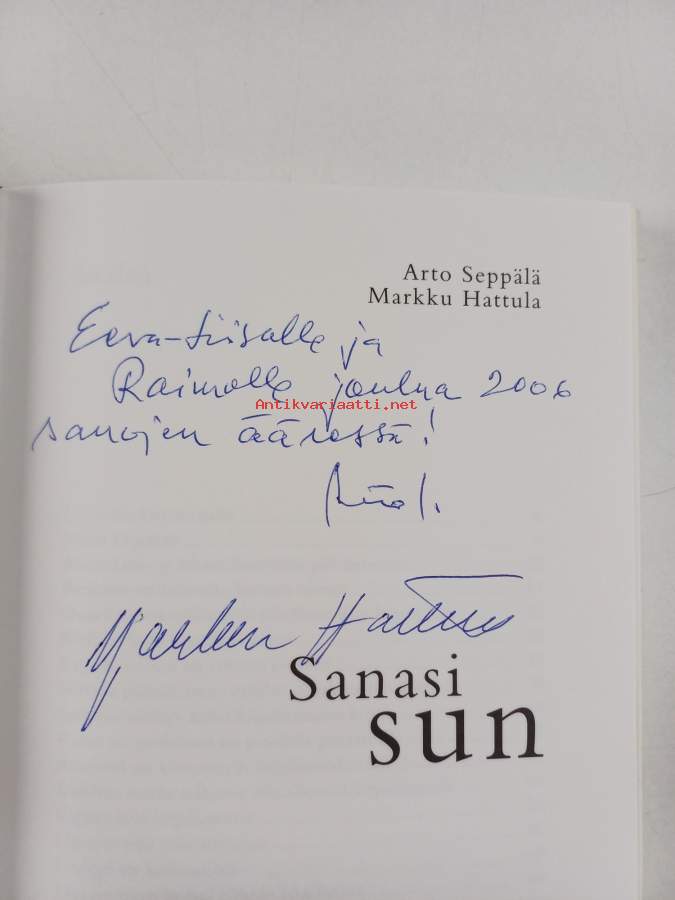 Arto Seppälä
Markku Hattula
Eeva-Liisalle ja
Raimolle joulua 2006
Antikvariaatti.net
sanojen ääressä!
Markku Hattula
Sanasi
sun